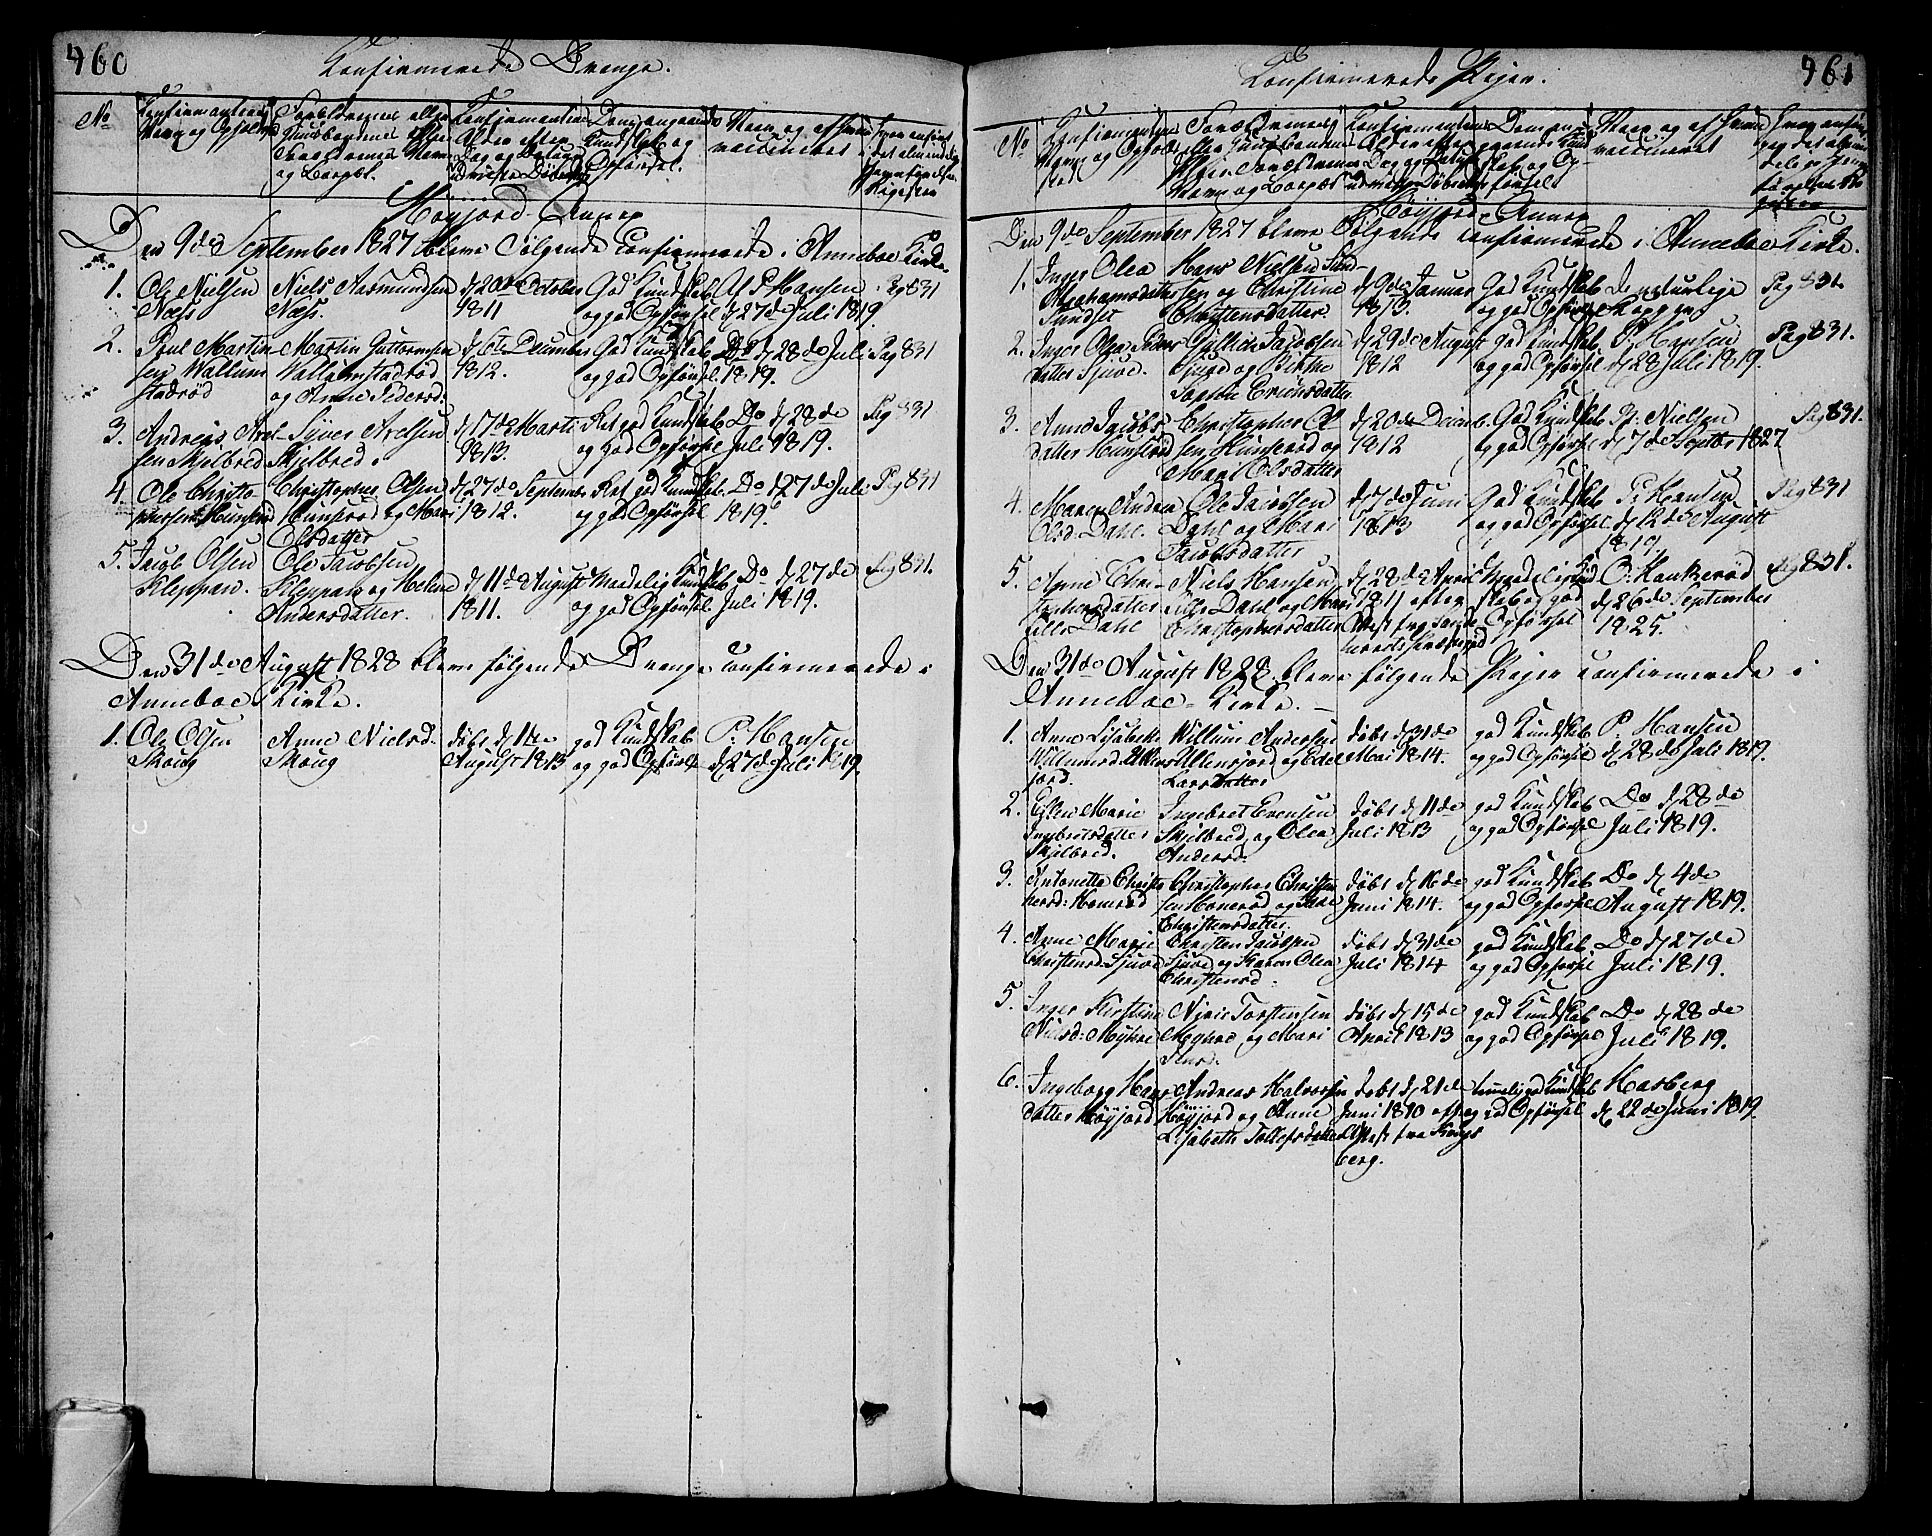 460
Confirmerede Drenge.
No
Confirmantens Navn og Opholdssted
Forældrenes eller Huusbondens eller Forældrenes Navn og Bopæl.
Confirmantens Alder efter Dag og Datum
Dom angaaende Kundskab og Opførsel.
Naar og af hvem vaccineret
Høyjord Annex
Den 9de September 1827 bleve Følgende Confirmerede i Anneboe Kirke.
1. Ole Nielsen Næss
Niels Aasmundsen Næss.
d 20de October 1811
God Kundskab og god Opførsel
Af P Hansen d 27de Juli 1819.
Pag 831
2. Poul Martinsen Wallumstadrød
Martin Guttormsen Wallumstadrød og Anne Pedersd.
d 6te December 1812.
God Kundskab og god Opførsel.
Do d 28de Juli 1819.
Pag 831
3. Andreas Axelsen Skjelbred
Syver Axelsen Skjelbred.
d 17de Marti 1813.
Ret god Kundskab og god Opførsel
Do d 28de Juli 1819.
Pag 831
4. Ole Christophersen Hunsrød
Christopher Olsen Hunsrød og Mari Olsdatter
d 27de September 1812.
Ret god Kundskab og god Opførsel
Do d 27de Juli 1819.
Pag 831
5. Jacob Olsen Kleppan.
Ole Jacobsen Kleppan og Helene Andersdatter.
d 11de August 1811.
Maadelig Kundskab og god Opførsel
Do d 27de Juli 1819.
Pag 831.
Den 31de August 1828 bleve følgende Drenge Confirmerede i
Anneboe Kirke.
1. Ole Olsen Skoug
Anne Nielsd. Skoug
døbt d 14de August 1813
god Kundskab og god Opførsel
P. Hansen d 27de Juli 1819.
461
Confirmerede Piger.
No
Confirmantens Navn og Opholdssted
Forældrenes eller Huusbondens eller Forældrenes Navn og Bopæl
Confirmantens Alder efter Dag og Datum
Dom angaaende Kundskab og Opførsel
Naar og af hvem vaccineret
Høyjord Annex
Den 9de September 1827 bleve Følgende confirmerede i Anneboe Kirke.
1. Inger Olea Abrahamsdatter Sundset
Hans Nielsen Sundsen og Christine Christensdatter
d 9de Januar 1813.
God Kundskab og god Opførsel
De naturlige Kopper
Pag 831.
2. Inger Olea datter Sjuve.
Gulbich Jacobsen Sjuve og Birthe Sophie Erichsdatter
d 29de August 1812
God Kundskab og god Opførsel
P. Hansen d 28de Juli 1819.
Pag 831.
3. Anne Jacobsdatter Hunsrød
Christopher Olsen Hunserød og Mari Olsdatter
d 20de Decemb. 1812
God Kundskab og god Opførsel
P. Nielsen d 7de Septbr 1827
Pag 831.
4. Maren Andrea Olsd. Dahl.
Ole Jacobsen Dahl og Mari Jacobsdatter
d 7de Juni 1813
God Kundskab og god Opførsel
P. Hansen d 12de August 1819
Pag 831
5. Anne Christophersdatter Lille Dahl
Niels Hansen Lille Dahl og Mari Christophersdatter
d 28de April 1811 efter Attest fra Sande
Maadelig Kundskab og god Opførsel
O. Haukerød d 26de September 1825.
Pag 831.
Den 31de August 1828. bleve følgende Piger confirmerede i
Anneboe Kirke.
1. Anne Lisabeth Willumsd. Ullensjord.
Willum Andersen Ullensjord og Edel Larsdatter
døbt d 31de Mai 1814.
god Kundskab og god Opførsel
P. Hansen d 28de Juli 1819.
2. Ellen Marie Ingebretsdatter Skjelbred.
Ingebret Evensen Skjelbred og Olea Andersd.
døbt d 11de Juli 1813
god Kundskab og god Opførsel
Do d 28de Juli 1819.
3. Antonette Christophersd: Honerød
Christopher Christensen Honerød og Christensdatter
døbt d 16de Juni 1814.
god Kundskab og god Opførsel
Do d 4de August 1819.
4. Anne Marie Christensd. Sjuve
Christen Jacobsen Sjuve og Karen Olea Christensd:
døbt d 31de Juli 1814
god Kundskab og god Opførsel
Do d 27de Juli 1819.
5. Inger Kirstine Nielsd: Myhre
Niels Torstensen Myhre og Mari
døbt d 15de April 1813
god Kundskab og god Opførsel
Do d 28de Juli 1819.
6. Ingeborg Hansdatter Høyjord
Andreas Halvorsen Høyjord og Anne Lisabeth Tollefsdatter
døbt d 21de Juni 1810 efter Attest fra Kongsberg.
temelig god Kundskab og god Opførsel
Hasberg d 22de Juni 1819